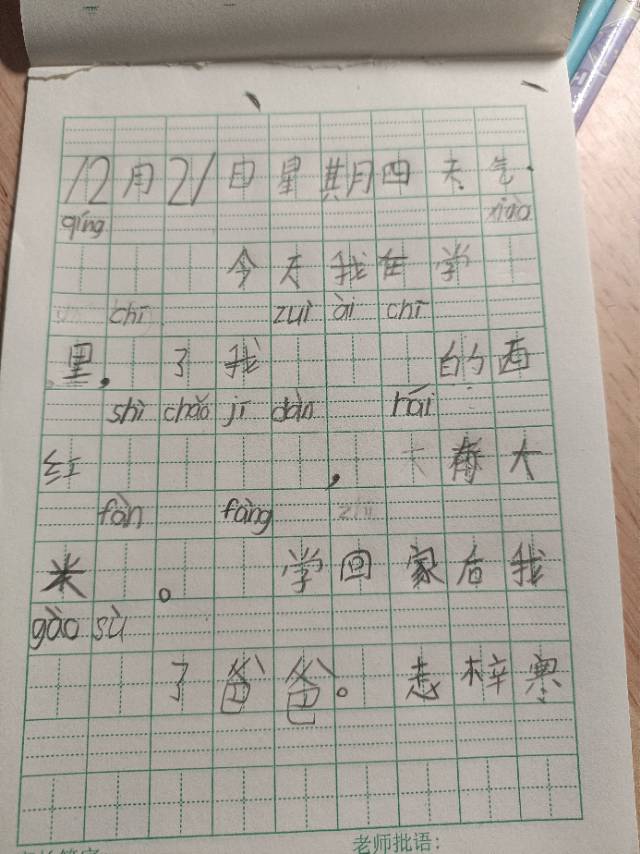 12月21日星期四天气
qíng xiào
今天我在学
chī zuì ài chī
里,了我的西
shì chǎo jī dàn hái
红,有大
fàn fàng
米。学回家后我
gào sù
了爸爸。梓寒
老师批语: